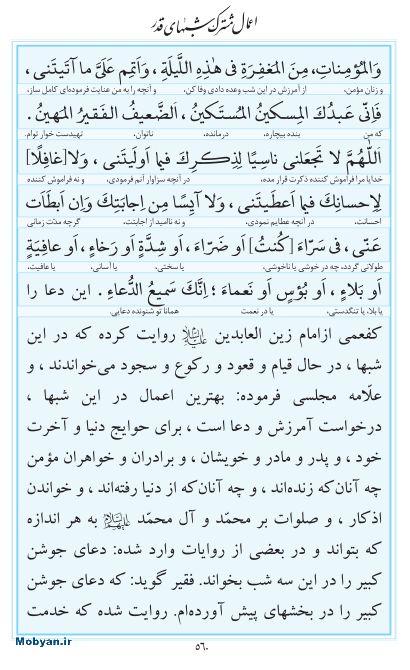 اعمال مشترک شبهای قدر
وَالْمُؤْمِناتِ، مِنَ الْمَغْفِرَةِ فى هٰذِهِ اللَّيْلَةِ ، وَاَتْمِمْ عَلَىَّ ما آتَيْتَنى ،
و زنان مؤمن، از آمرزش در این شب وعده دادی وفا کن، و آنچه را به من عنایت فرموده‌ای کامل ساز،
فَاِنّى عَبْدُكَ الْمِسْكينُ الْمُسْتَكينُ ، الضَّعيفُ الْفَقيرُ الْمَهينُ .
که من بنده بیچاره، درمانده، ناتوان، تهیدست خوار توام.
اَللّٰهُمَّ لا تَجْعَلْنى ناسِيًا لِذِكْرِكَ فيما اَوْلَيْتَنى ، وَلا[غافِلًا]
خدایا مرا فراموش کننده ذکرت قرار مده، در آنچه سزاوار آنم فرمودی، و نه فراموش کننده
لِاِحْسانِكَ فيما اَعْطَيْتَنى ، وَلا آيِسًا مِنْ اِجابَتِكَ وَاِنْ اَبْطَأَتْ
احسانت، در آنچه عطایم نمودی، و نه ناامید از اجابتت گرچه مدت زمانی
عَنّى ، فى سَرّاءَ [كُنْتُ] اَوْ ضَرّاءَ ، اَوْ شِدَّةٍ اَوْ رَخاءٍ ، اَوْ عافِيَةٍ
طولانی گردد، چه در خوشی یا ناخوشی، یا سختی، یا آسانی، یا عافیت،
اَوْ بَلاءٍ ، اَوْ بُؤْسٍ اَوْ نَعماءَ ؛ اِنَّكَ سَميعُ الدُّعاءِ . این دعا را
یا بلا، یا تنگدستی، یا در نعمت همانا تو شنونده دعایی.
کفعمی ازامام زین العابدین روایت کرده که در این
شبها ، در حال قیام و قعود و رکوع و سجود می‌خواندند ، و
علّامه مجلسی فرموده: بهترین اعمال در این شبها ،
درخواست آمرزش و دعا است ، برای حوایج دنیا و آخرت
خود ، و پدر و مادر و خویشان ، و برادران و خواهران مؤمن
چه آنان‌که زنده‌اند ، و چه آنان‌که از دنیا رفته‌اند ، و خواندن
اذکار ، و صلوات بر محمّد و آل محمّد به هر اندازه
که بتواند و در بعضی از روایات وارد شده: دعای جوشن
کبیر را در این سه شب بخواند. فقیر گوید: که دعای جوشن
کبیر را در بخشهای پیش آورده‌ام. روایت شده که خدمت
Mobyan.ir
٥٦٠